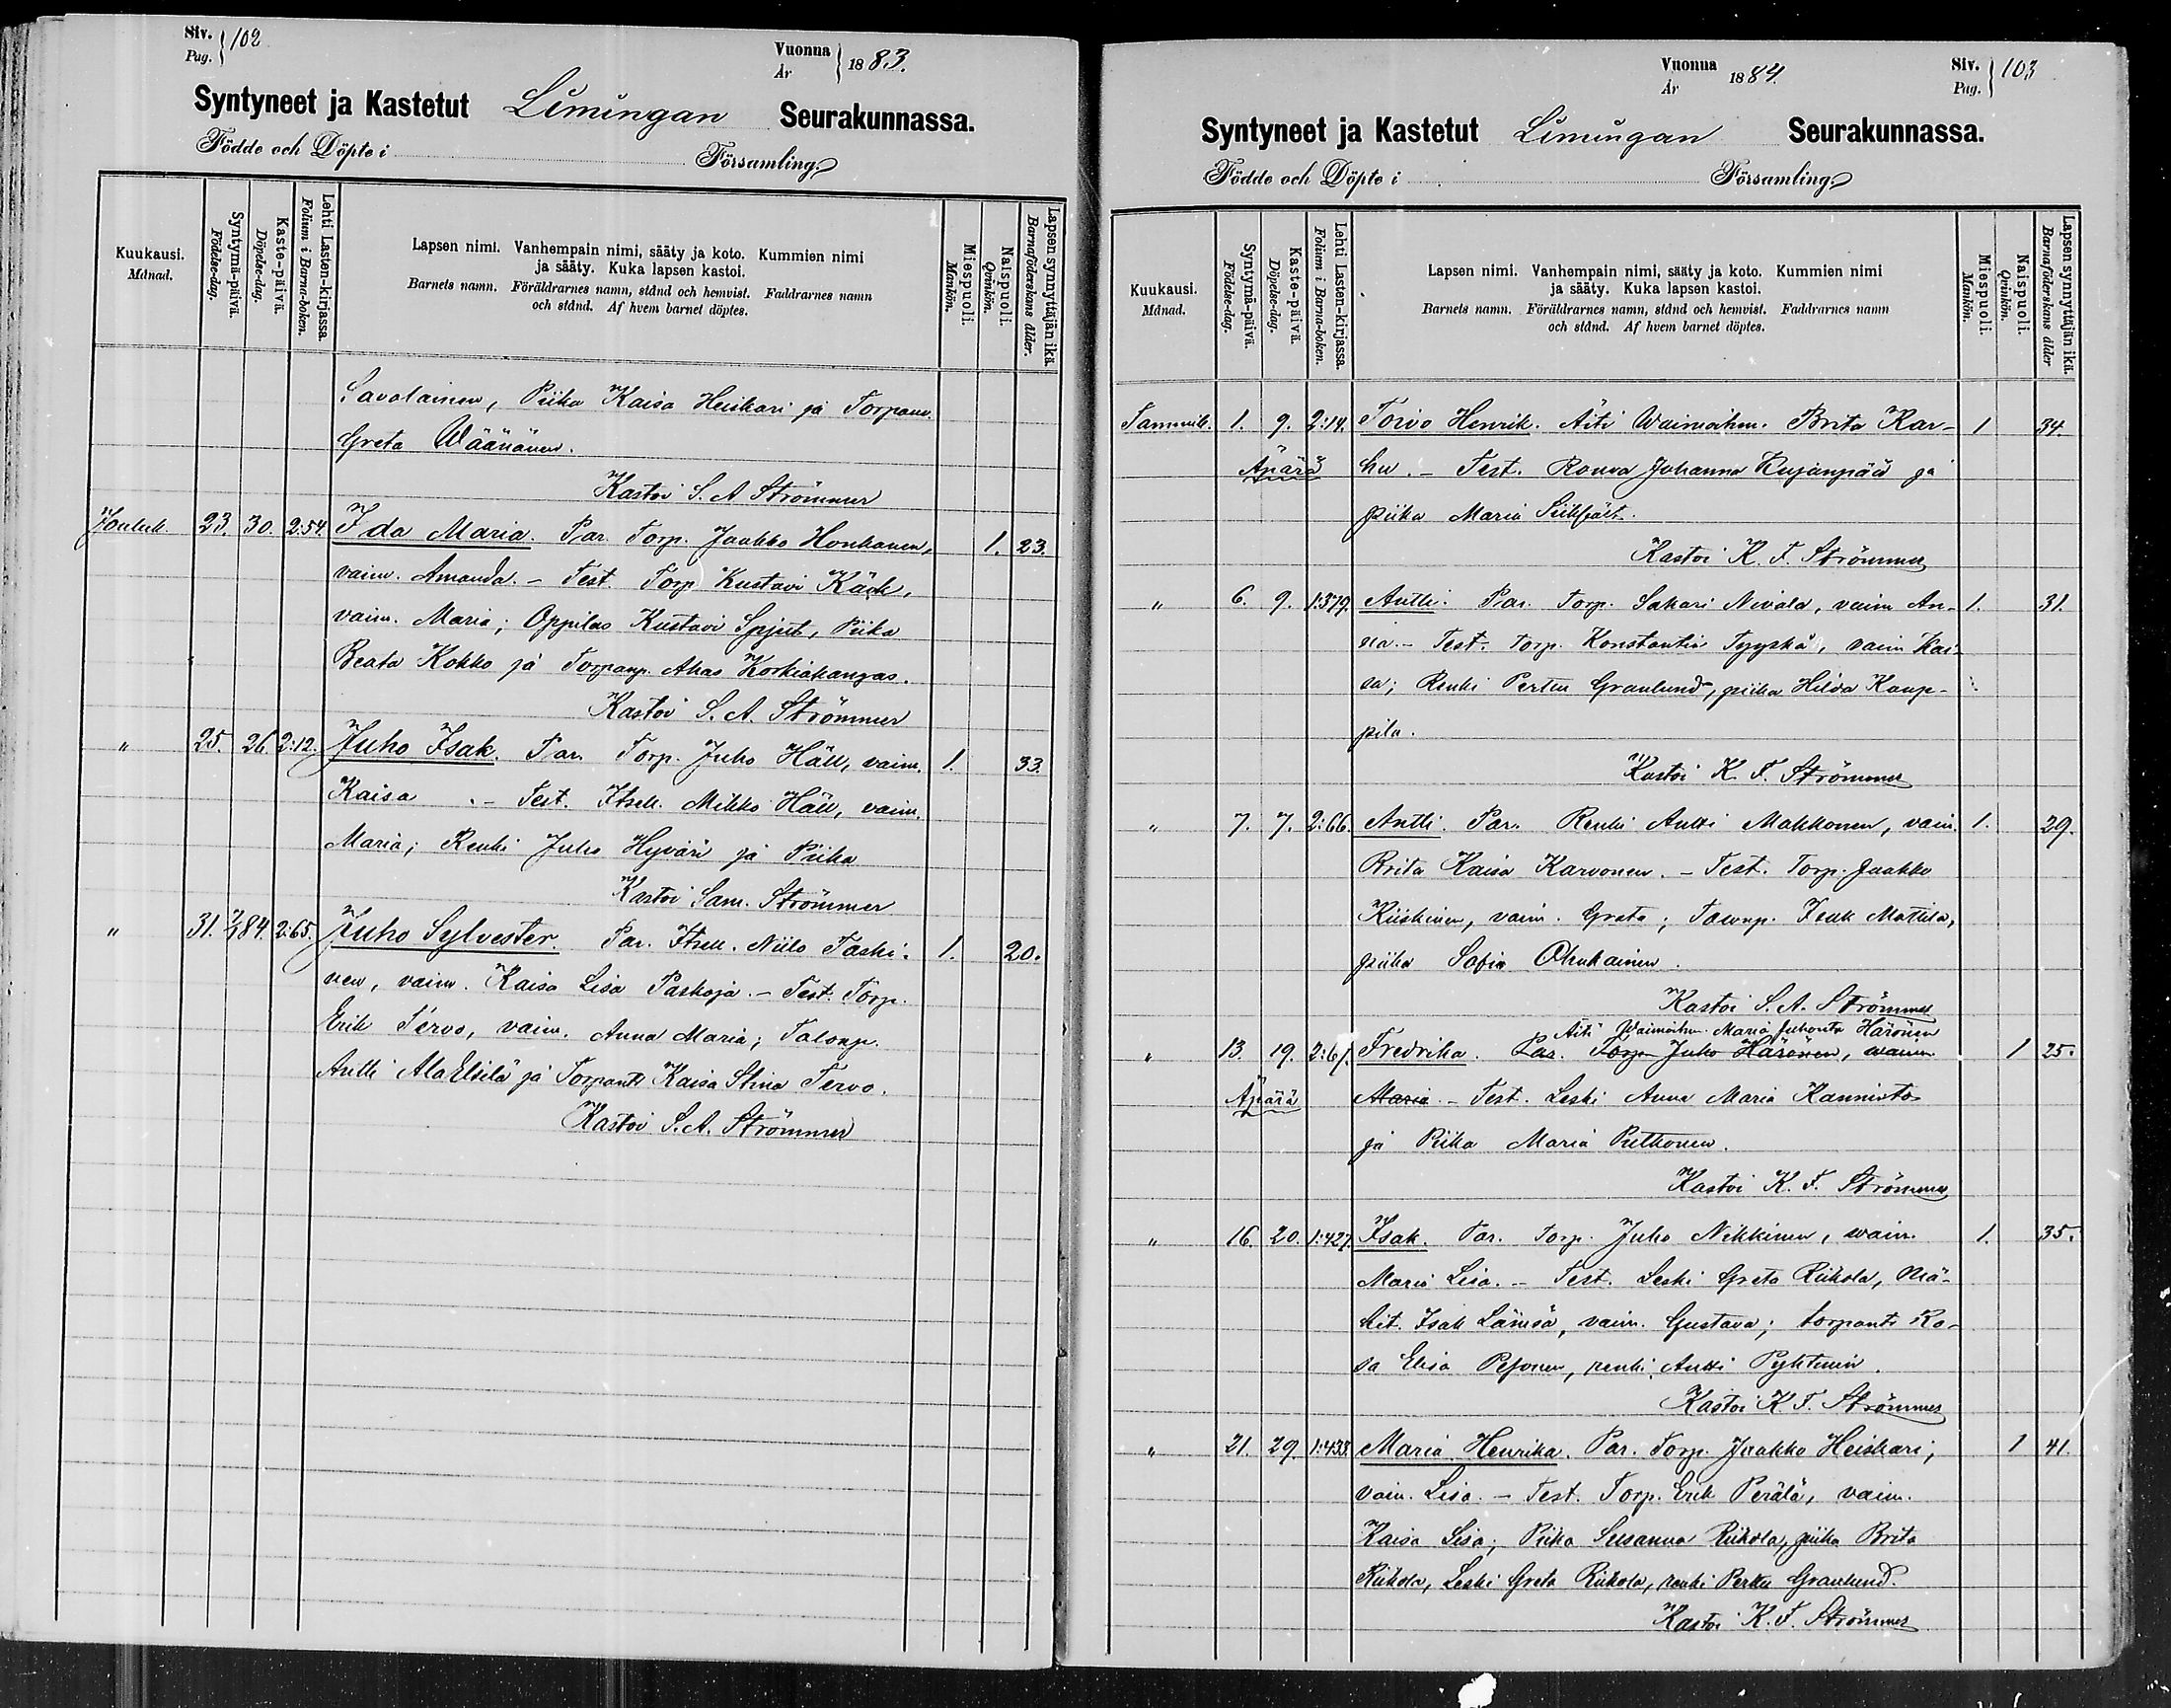 Siv. 102
Pag.
Vuonna 1883.
År
Syntyneet ja Kastetut Limingan Seurakunnassa.
Födde och Döpte i Församling.
Kuukausi.
Månad.
Syntymä-päivä.
Födelse-dag.
Kaste-päivä.
Döpelse-dag.
Lehti Lasten-kirjassa.
Folium i Barna-boken.
Lapsen nimi. Vanhempain nimi, sääty ja koto. Kummien nimi
ja sääty. Kuka lapsen kastoi.
Barnets namn. Föräldrarnes namn, stånd och hemvist. Faddrarnes namn
och stånd. Af hvem barnet döptes.
Miespuoli.
Mankön.
Naispuoli.
Qvinkön.
Lapsen synnyttäjän ikä.
Barnaföderskans ålder.
Savolainen, Piika Kaisa Heiskari ja Torpanv.
Greta Väänänen.
Kastoi S. A Strömmer
Jouluk. 23. 30. 2:54. Ida Maria. Par. Torp. Jaakko Honkanen, 1. 23.
vaim. Amanda. – Test. Torp Kustavi Käck,
vaim. Maria; Oppilas Kustavi Spjut, Piika
Beata Kokko ja Torpanp. Akas Korkiakangas.
Kastoi S. A. Strömmer
" 25. 26. 2:12. Juho Isak. Par. Torp. Juho Häll, vaim. 1. 33.
Kaisa . – Test. Itsell. Mikko Häll, vaim.
Maria; Renki Juho Hyväri ja Piika
Kastoi Sam. Strömmer
" 31. 84. 2:65. Juho Sylvester. Par. Itsell. Niilo Taski- 1. 20.
nen, vaim. Kaisa Lisa Paskoja. – Test. Torp.
Erik Tervo, vaim. Anna Maria; Talonp.
Antti Ala Elsilä ja Torpant. Kaisa Stina Tervo.
Kastoi S. A. Strömmer
Vuonna 1884.
År
Siv. 103
Pag.
Syntyneet ja Kastetut Limingan Seurakunnassa.
Födde och Döpte i Församling.
Kuukausi.
Månad.
Syntymä-päivä.
Födelse-dag.
Kaste-päivä.
Döpelse-dag.
Lehti Lasten-kirjassa.
Folium i Barna-boken.
Lapsen nimi. Vanhempain nimi, sääty ja koto. Kummien nimi
ja sääty. Kuka lapsen kastoi.
Barnets namn. Föräldrarnes namn, stånd och hemvist. Faddrarnes namn
och stånd. Af hvem barnet döptes.
Miespuoli.
Mankön.
Naispuoli.
Qvinkön.
Lapsen synnyttäjän ikä.
Barnaföderskans ålder
Tammik. 1. 9. 2:14. Toivo Henrik. Äiti Waimoihm. Brita Kar- 1 34.
Äpärä hu. – Test. Rouva Johanna Kujanpää ja
piika Maria
Kastoi K. F. Strömmer
" 6. 9. 1:379. Antti. Par. Torp. Sakari Nivala, vaim An- 1. 31.
na. – Test. Torp. Konstantin Tyyskä, vaim Kai-
sa; Renki Perttu Granlund, piika Hilda Kaup-
pila.
Kastoi K. F. Strömmer
" 7. 7. 2:66. Antti. Par. Renki Antti Makkonen, vaim. 1. 29.
Brita Kaisa Karvonen. – Test. Torp. Jaakko
Kiiskinen, vaim. Greta; Talonp. Isak Mattila,
piika Sofia Ohukainen.
Kastoi S. A. Strömmer
Äiti Waimoihm. Maria Juhonta Härönen
" 13. 19. 2:61. Fredrika. Par. Torp. Juho Härönen, vaim 1 25.
Äpärä Maria. – Test. Leski Anna Maria Kannisto
ja Piika Maria Putkonen.
Kastoi K. F. Strömmer
" 16. 20. 1:427. Isak. Par. Torp. Juho Nikkinen, vaim. 1. 35.
Maria Lisa. – Test. Leski Greta Riikola, Mä-
kit. Isak Lämsä, vaim. Gustava; torpant. Ro-
sa Elisa Pesonen, renki Antti
Kastoi K. F. Strömmer
" 21. 29. 1:433. Maria Henrika. Par. Torp. Jaakko Heiskari, 1 41.
vaim. Lisa. – Test. Torp. Erik Perälä, vaim.
Kaisa Lisa; Piika Susanna Riikola, piika Brita
Riikola, Leski Greta Riikola, renki Perttu Granlund.
Kastoi K. F. Strömmer